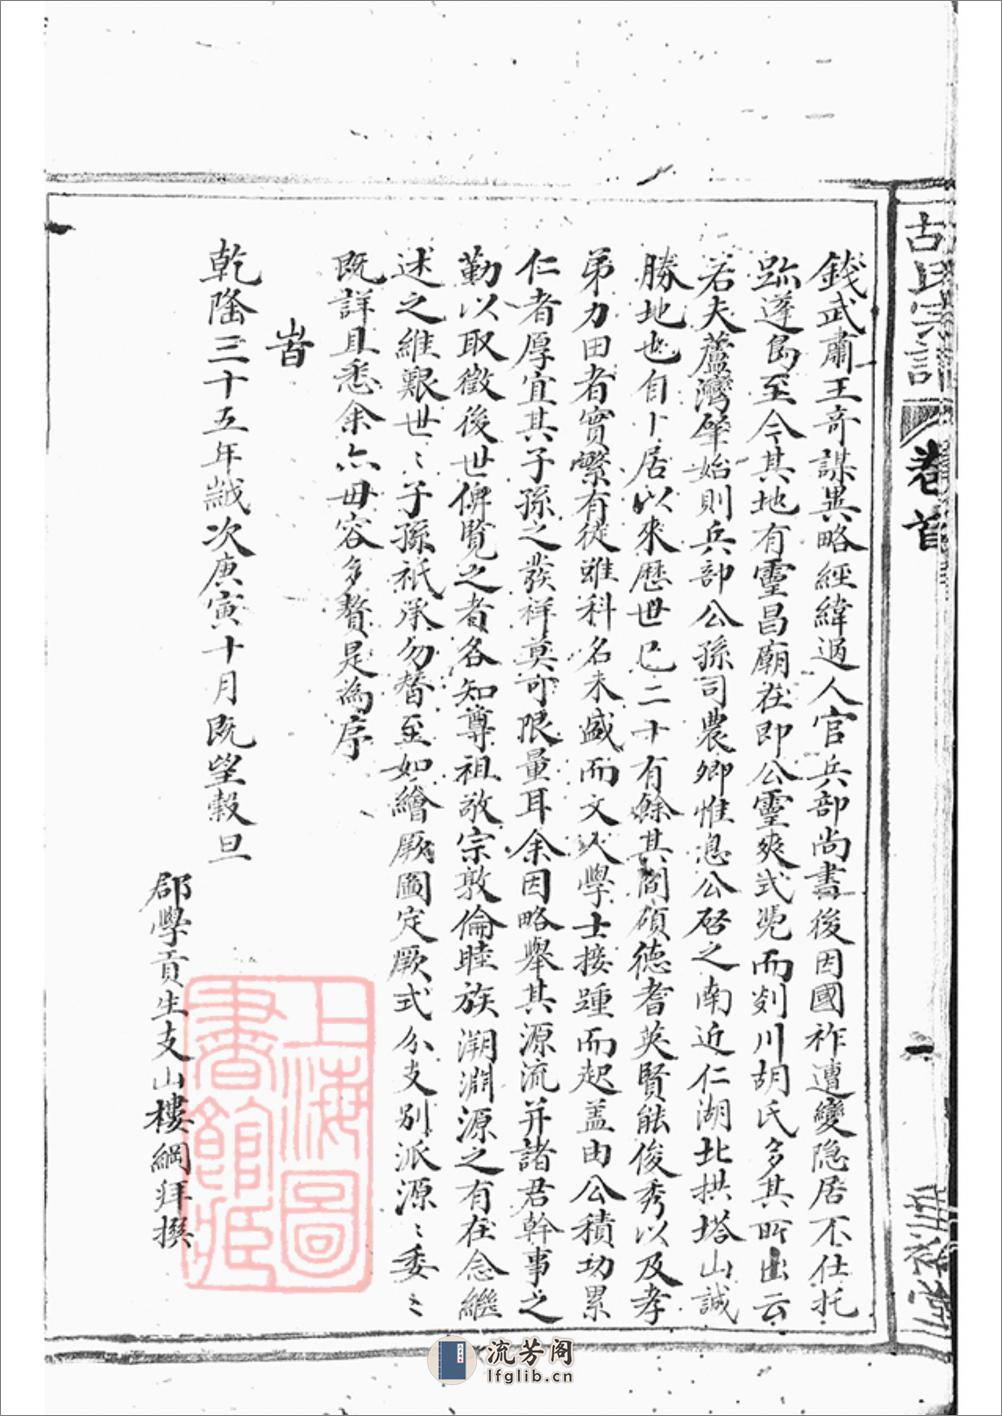 錢武肅王奇謀異略經緯過人官兵部尚書後因國祚遭變隐居不仕托
跡蓬島至今其地有靈昌廟在即公靈爽式憑而剡川胡氏多其所出云
若夫蘆灣肇始則兵部公孫司農卿惟息公啓之南近仁湖北拱塔山誠
勝地也自卜居以來歷世已二十有餘其間碩德耆英賢能俊秀以及孝
弟力田者實繁有徒雖科名未盛而文人學士接踵而起盖由公積功累
仁者厚宜其子孫之發祥莫可限量耳余因略舉其源流并諸君幹事之
勤以取徵後世俾覧之者各知尊祖敬宗敦倫睦族溯淵源之有在念繼
述之維艱世〻子孫祇承勿替至如繪厥圖定厥式分支别派源〻委〻
既詳且悉余亦毋容多贅是為序
旹
乾隆三十五年歲次庚寅十月既望穀旦
郡學貢生支山樓綱拜撰
古氏宗譜
卷首
一
世裕堂
上海圖書館藏
流芳阁
lfglib.cn